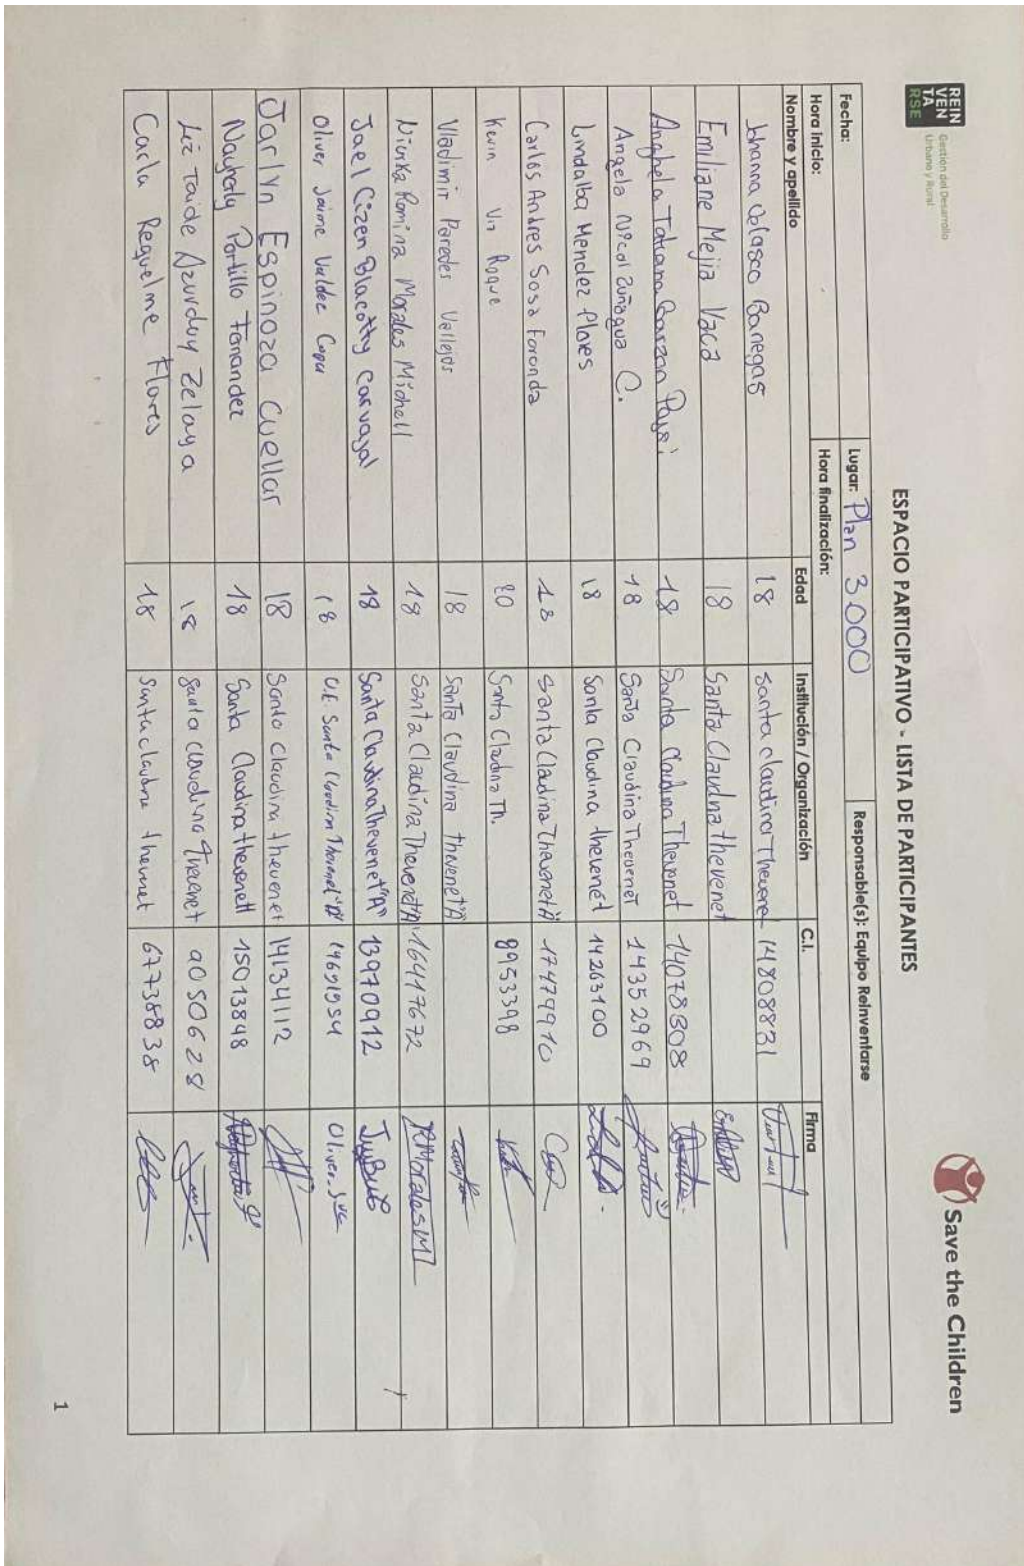 REINVENTA RSE
Gestión del Desarrollo
Urbano y Rural
Save the Children
ESPACIO PARTICIPATIVO - LISTA DE PARTICIPANTES
Fecha: Lugar: Plan 3000 Responsable(s): Equipo Reinventarse
Hora inicio: Hora finalización:
Nombre y apellido Edad Institución / Organización C.I. Firma
Johanna Banegas 18 Santa claudina Thevenet 14808831
Emiliane Mejia Vaca 18 Santa Claudina thevenet
Tatiana Garzon 18 Santa Claudina Thevenet 14078308
Angela Nicol Zuñagua C. 18 Santa Claudina Thevenet 14352969
Lindalba Mendez flores 18 Santa Claudina thevenet 14263100
Carlos Andres Sosa Foronda 18 Santa Claudina Thevenet "A" 17479910
Kevin Roque 20 Santa Claudina Th. 8953398
Vladimir Paredes Vallejos 18 Santa Claudina thevenet "A"
Romina Morales Michell 18 Santa Claudina Thevenet "A" 16417672 RMoralesM
Jael Cizen Blacotty Carvajal 18 Santa Claudina Thevenet "A" 13970912
Oliver Jaime Valdez 18 U.E. Santa Claudina Thevenet "A" Oliver
Jarlyn Espinoza Cuellar 18 Santa Claudina thevenet 14134112
Portillo Fernandez 18 Santa Claudina thevenett 15013848
Liz Taide Azurduy Zelaya 18 Santa claudina thevenet
Carla Requelme Flores 18 Santa claudina thevenet 67738838
1